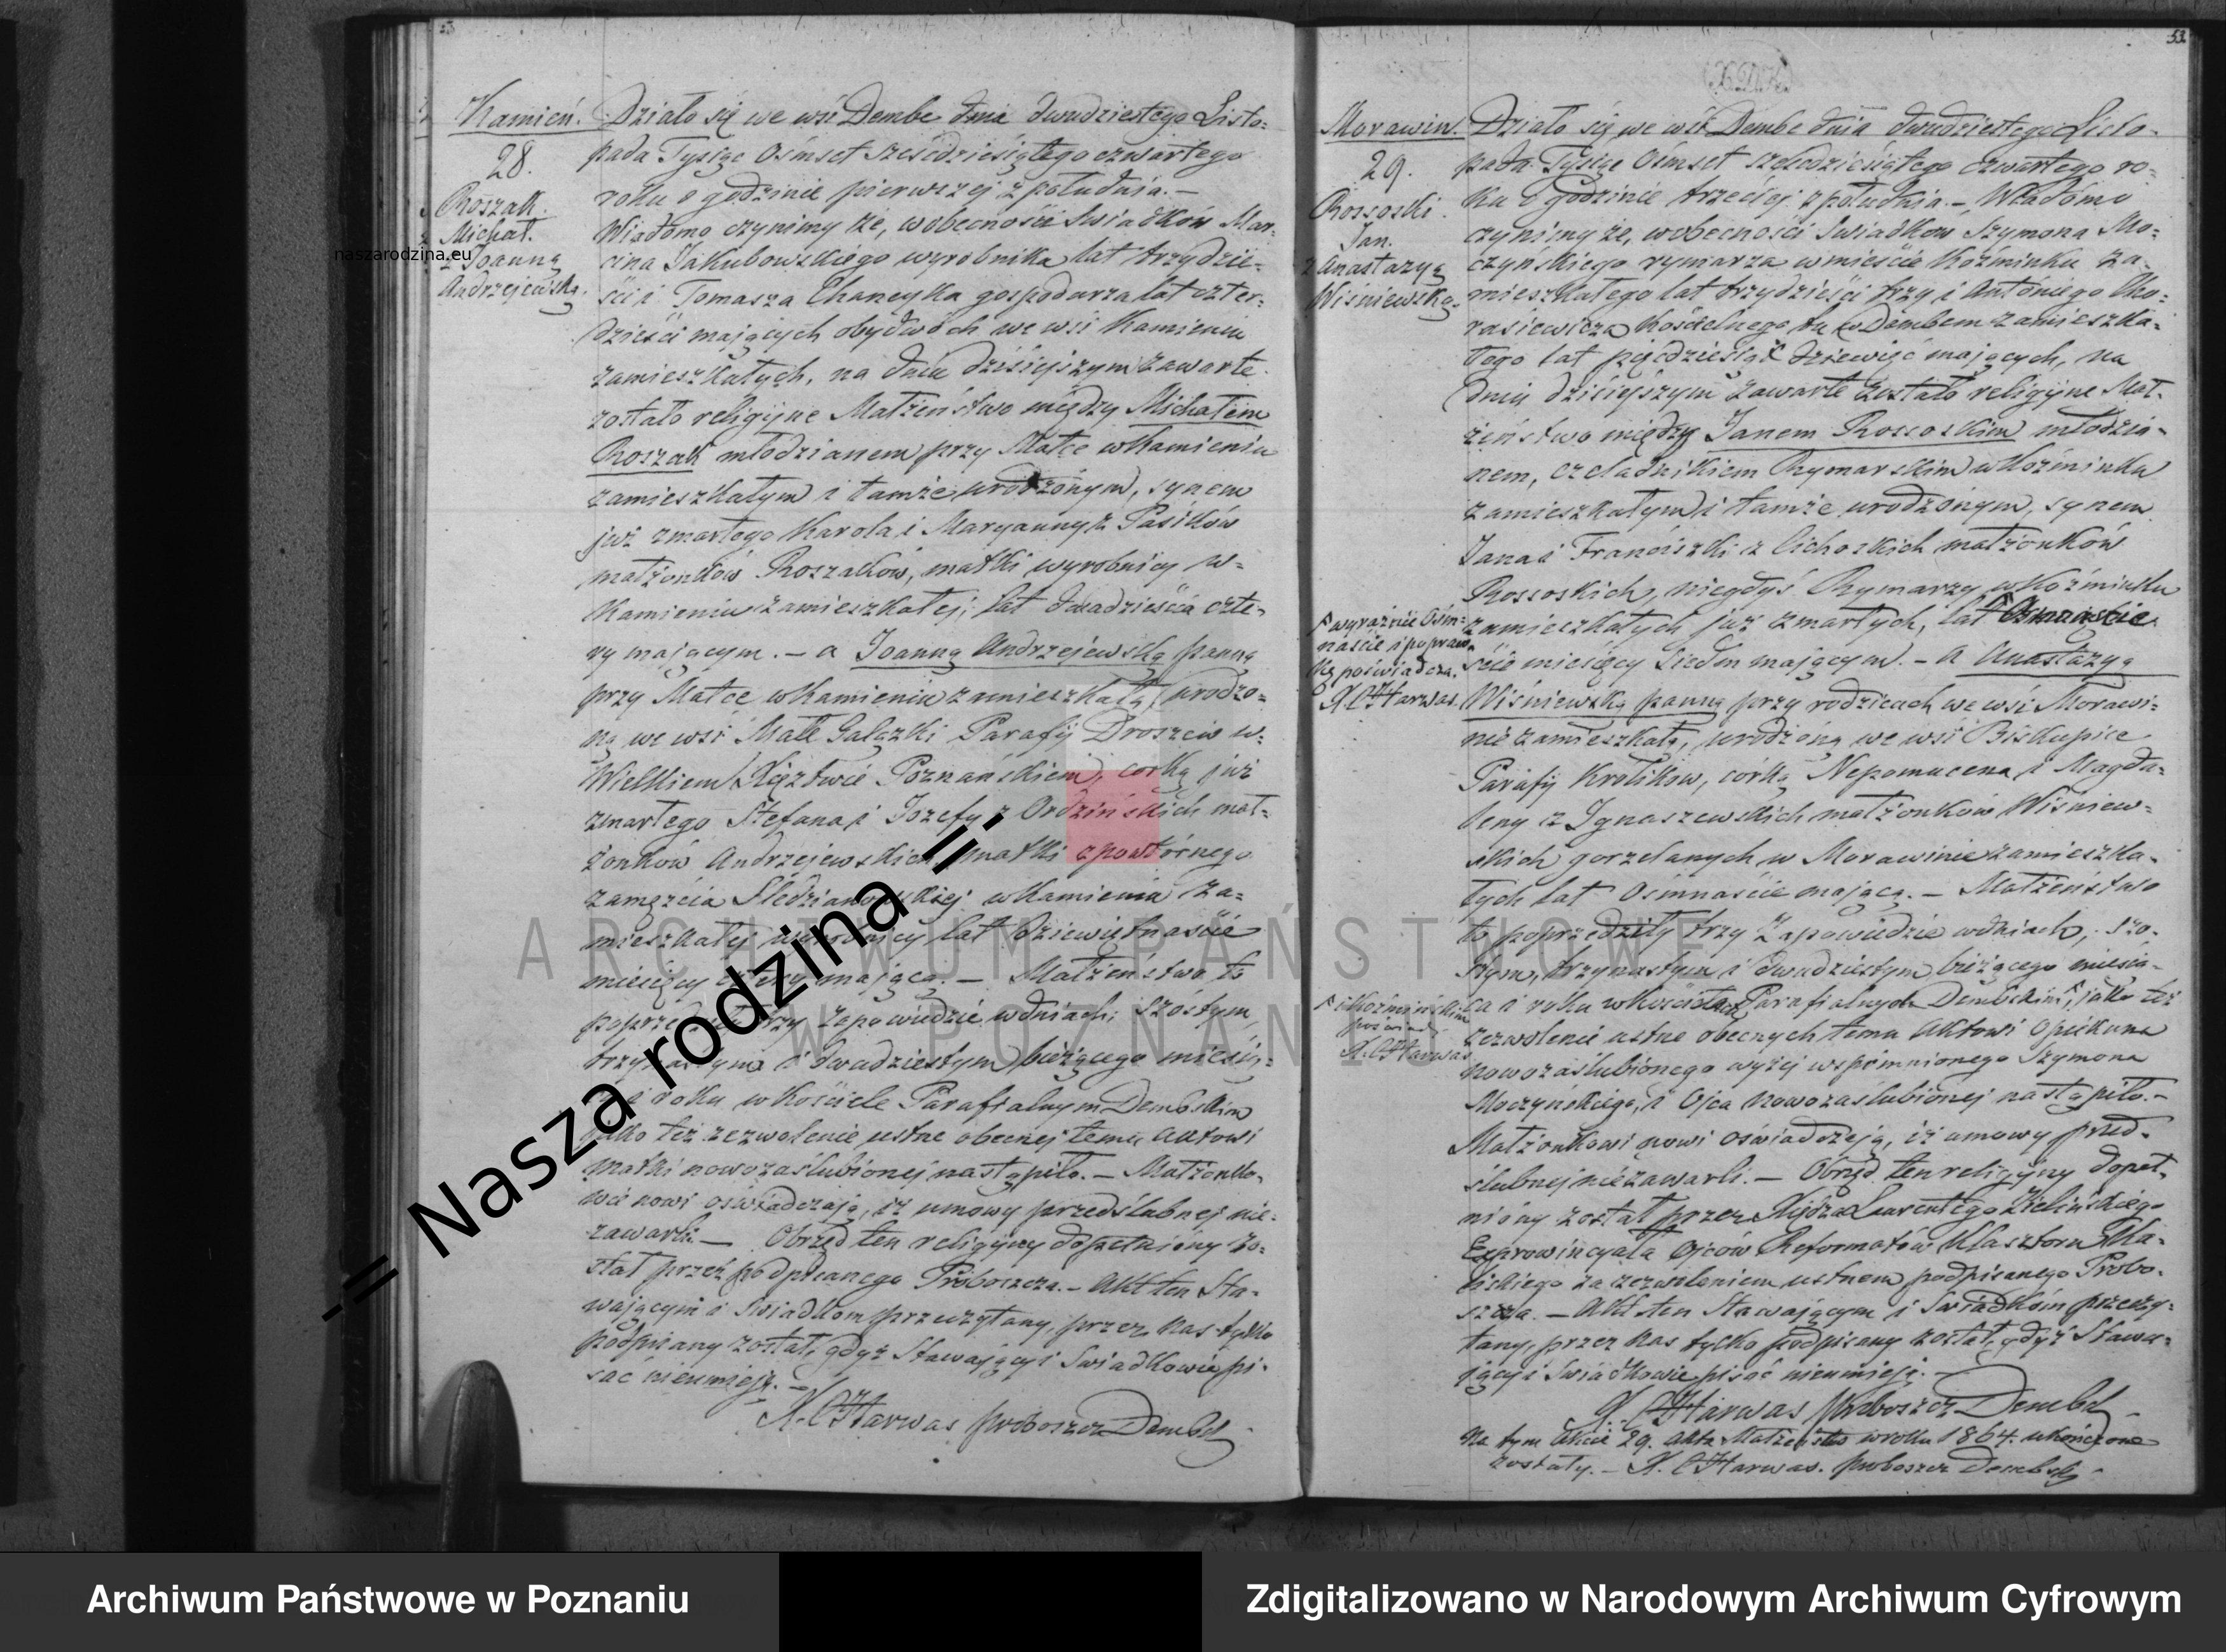 Kamień.
28.
Roszak
Michał.
z Joanną
Andrzejewską.
Działo się we wsi Dembe dnia dwudziestego Listo=
pada Tysiąc Ośmset sześćdziesiątego czwartego
roku o godzinie pierwszej z południa. –
Wiadomo czynimy że, w obecności Swiadków Mar=
cina Jakubowskiego wyrobnika lat trzydzie=
ści i Tomasza gospodarza lat czter=
dzieści mających obydwóch we wsi Kamieniu
zamieszkałych, na dniu dzisiejszym zawarte
zostało religijne Małżeństwo między Michałem
Roszak młodzianem przy Matce w Kamieniu
zamieszkałym i tamże urodzonym, synem
już zmarłego Karola i Maryanny z Pasików
małżonków Roszaków, matki wyrobnicy w=
Kamieniu zamieszkałej, lat dwadzieścia czte=
ry mającym. – a Joanną Andrzejewską panną
przy Matce w Kamieniu zamieszkałą, urodzo=
ną we wsi Małe Gałązki Parafij Droszew w=
Wielkiem Xięztwie Poznańskiem, corką już
zmarłego Stefana i Jozefy z Ordzińskich mał=
żonków Andrzejewskich, matki z powtórnego
zamęźcia w Kamieniu za=
mieszkałej wyrobnicy lat dziewiętnaście
miesięcy cztery mającą. – Małżeństwo to
poprzedziły trzy Zapowiedzie w dniach; szóstym,
trzynastym i dwudziestym bieżącego miesią=
ca i roku w Kościele Parafialnym Dembskim
jako też zezwolenie ustne obecnej temu Aktowi
matki nowozaślubionej nastąpiło. – Małżonko=
wie nowi oświadczają, iż umowy przedślubnej nie=
zawarli. – Obrzęd ten religijny dopełniony zo=
stał przez podpisanego Proboszcza. – Akt ten Sta=
wającym i Swiadkom przeczytany, przez Nas tylko
podpisany został, gdyż Stawający i Swiadkowie pi=
sać nieumieją. –
X. C Harwas proboszcz Dembski
53
Morawin.
29.
Rossoski
Jan.
z Anastazyą
Wiśniewską.
Działo się we wsi Dembe dnia dwudziestego Listo=
pada Tysiąc Ośmset sześćdziesiątego czwartego ro=
ku o godzinie trzeciej z południa. – Wiadomo
czynimy że, w obecności Swiadków Szymona Mo=
czynskiego rymarza w mieście Koźminku za=
mieszkałego lat trzydzieści trzy i Antoniego Cho=
rasiewicza Kościelnego tu w Dembem zamieszka=
łego lat pięćdziesiąt dziewięć mających, na
dniu dzisiejszym zawarte zostało religijne Mał=
żeństwo między Janem Rossoskim młodzia=
nem, czeladnikiem Rymarskim w Koźminku
zamieszkałym i tamże urodzonym, synem
Jana i Franciszki z Cichoskich małżonków
Rossoskich, niegdyś Rymarzy w Koźminku
zamieszkałych już zmarłych, lat Ośmnaście
miesięcy siedm mającym. – a Anastazyą
Wiśniewską panną przy rodzicach we wsi Morawi=
nie zamieszkałą, urodzoną we wsi Biskupice
Parafij Krolikow, córką Nepomucena i Magda=
leny z Ignaszewskich małżonków Wiśniew=
skich gorzelanych w Morawinie zamieszka=
łych lat Ośmnaście mającą. – Małżeństwo
to poprzedziły trzy Zapowiedzie w dniach; szo=
stym, trzynastym i dwudziestym bieżącego miesią=
ca i roku w Parafialnych Dembskim, jako też
zezwolenie ustne obecnych temu Aktowi Opiekuna
nowozaślubionego wyżej wspomnionego Szymona
Moczyńskiego, i Ojca nowozaślubionej nastąpiło. –
Małżonkowi nowi oświadczają, iż umowy przed=
ślubnej niezawarli. – Obrzęd ten religijny dopeł=
niony został przez Xiędza Laurentego Zielińskiego
Exprowincyała Ojców Reformatów Klasztoru Ka=
liskiego za zezwoleniem ustnem podpisanego Probo=
szcza. – Akt ten Stawającym i Swiadkom przeczy=
tany, przez Nas tylko podpisany został, gdyż Stawa=
jący i Swiadkowie pisać nieumieją. –
X. C Harwas proboszcz Dembski
Na tym Akcie 29. Akta Małżeństw w roku 1864. ukończone
zostały. – X. C Harwas. proboszcz Dembski
wyraźnie Ośm=
naście i popraw=
kę poświadcza.
X. C Harwas.
i Koźminskim
poświad.
X. C Harwas
naszarodzina.eu
-= Nasza rodzina =-
ARCHIWUM PAŃSTWOWE
W POZNANIU
Archiwum Państwowe w Poznaniu
Zdigitalizowano w Narodowym Archiwum Cyfrowym